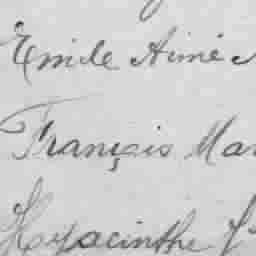 Emile Aimé
François Mar
Hyacinthe